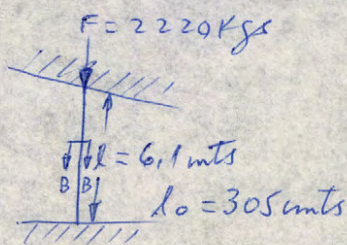 F = 2220 Kgs
l = 6,1 mts
B B
lo = 305 cmts